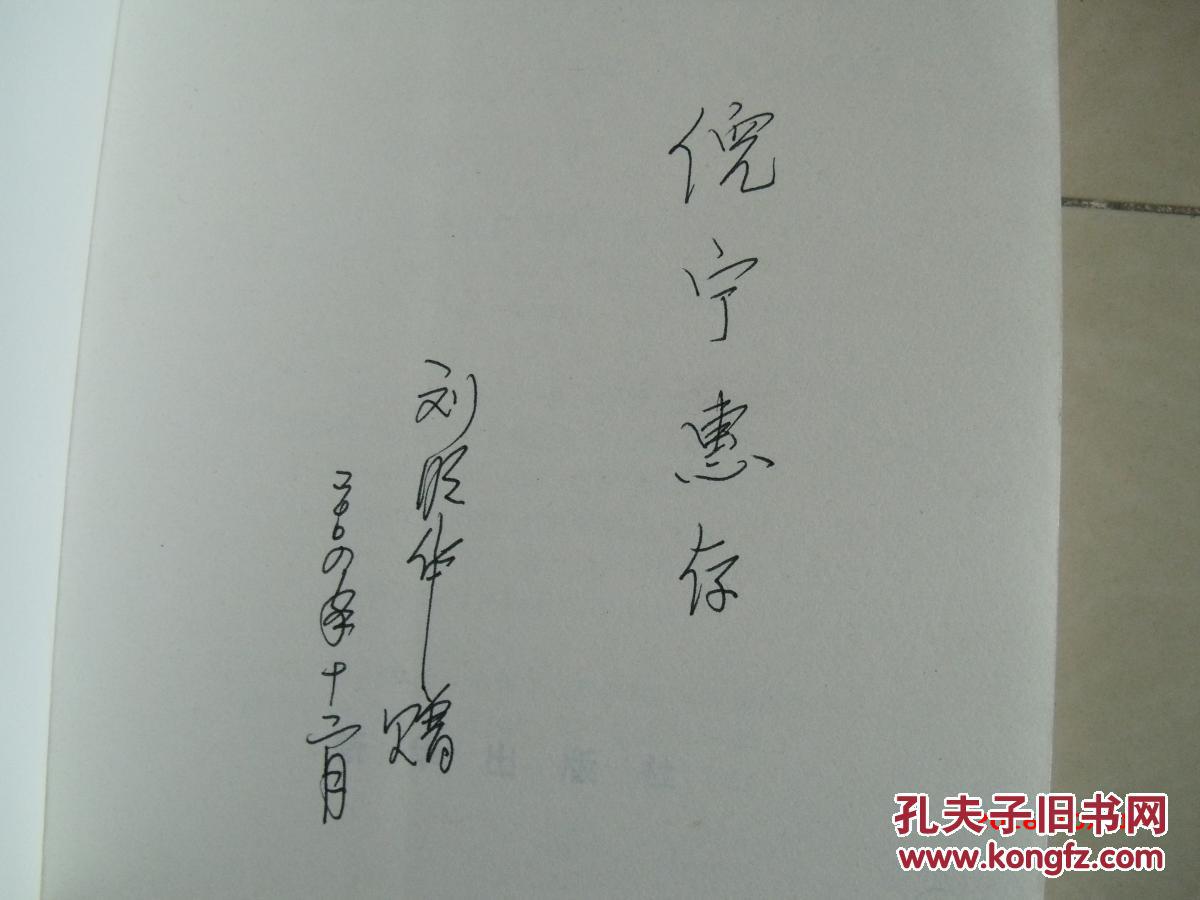 倪宁惠存
刘明华赠
二〇〇四年十二月
出版社
孔夫子旧书网
www.kongfz.com